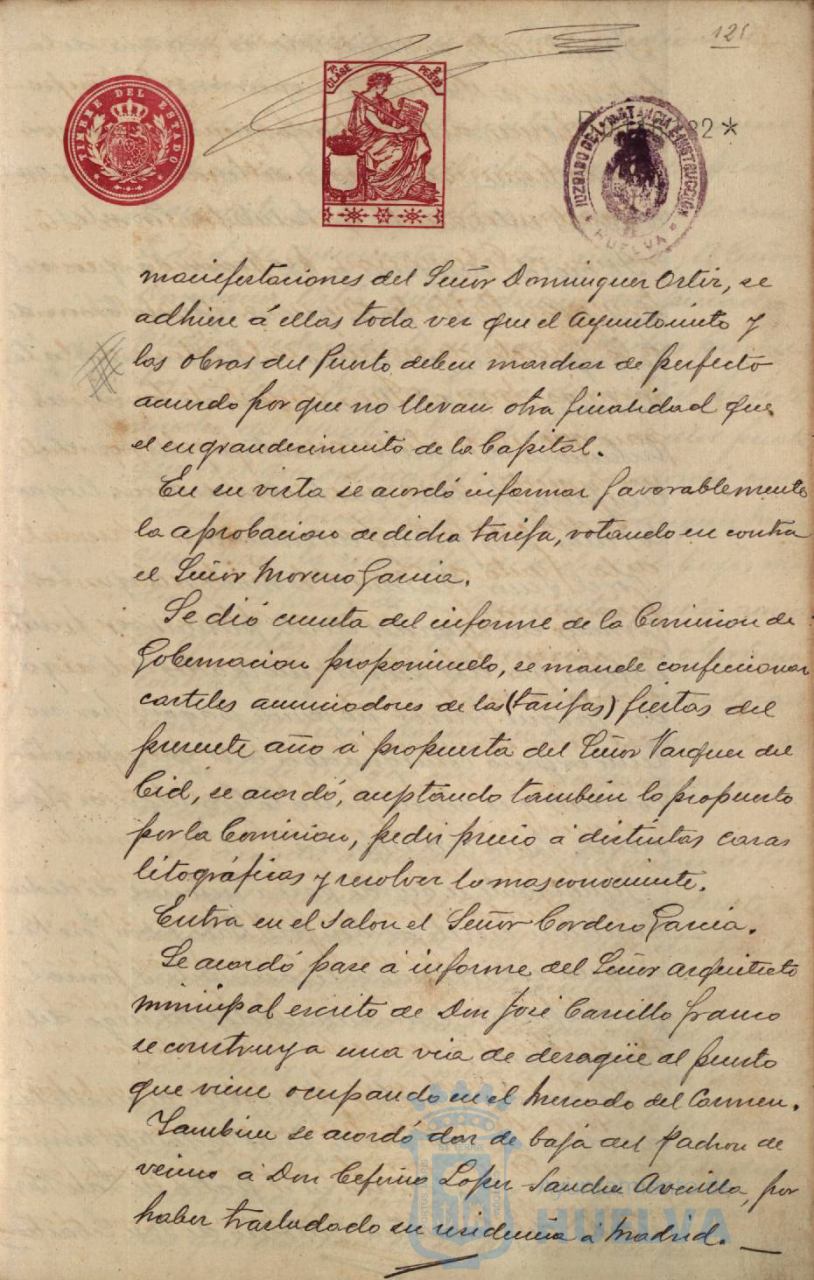 125
TIMBRE DEL ESTADO
7ª CLASE PESETAS
JUZGADO DE 1ª INSTANCIA E INSTRUCCIÓN
* HUELVA *
manifestaciones del Señor Dominguez Ortiz, se
adhiere á ellas toda vez que el Ayuntamiento y
las obras del Puerto deben marchar de perfecto
acuerdo por que no llevan otra finalidad que
el engrandecimiento de la Capital.
En su vista se acordó informar favorablemente
la aprobacion de dicha tarifa, votando en contra
el Señor Moreno Garcia.
Se dió cuenta del informe de la Comision de
Gobernacion proponiendo, se mande confeccionar
carteles anunciadores de las (tarifas) fiestas del
presente año á propuesta del Señor Vazquez del
Cid, se acordó, aceptando tambien lo propuesto
por la Comision, pedir precio á distintas casas
litográficas y resolver lo mas conveniente.
Entra en el salon el Señor Cordero Garcia.
Se acordó pase á informe del Señor Arquitecto
municipal escrito de Don José Carrillo Franco
se construya una via de desagüe al puesto
que viene ocupando en el Mercado del Carmen.
Tambien se acordó dar de baja del Padron de
vecinos á Don Ceferino Lopez Sandre Avecilla, por
haber trasladado su residencia á Madrid.
HUELVA